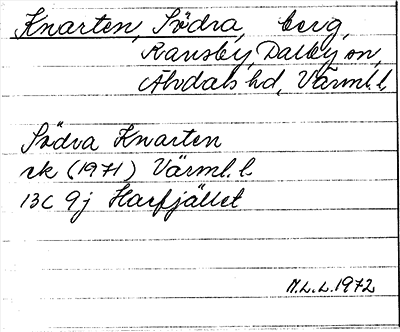 Knarten, Södra, berg,
Ransby, Dalby sn,
Älvdals hd, Värml. l.
Södra Knarten
rk (1971) Värml. l.
13C 9j Harfjället
M.L.L. 1972